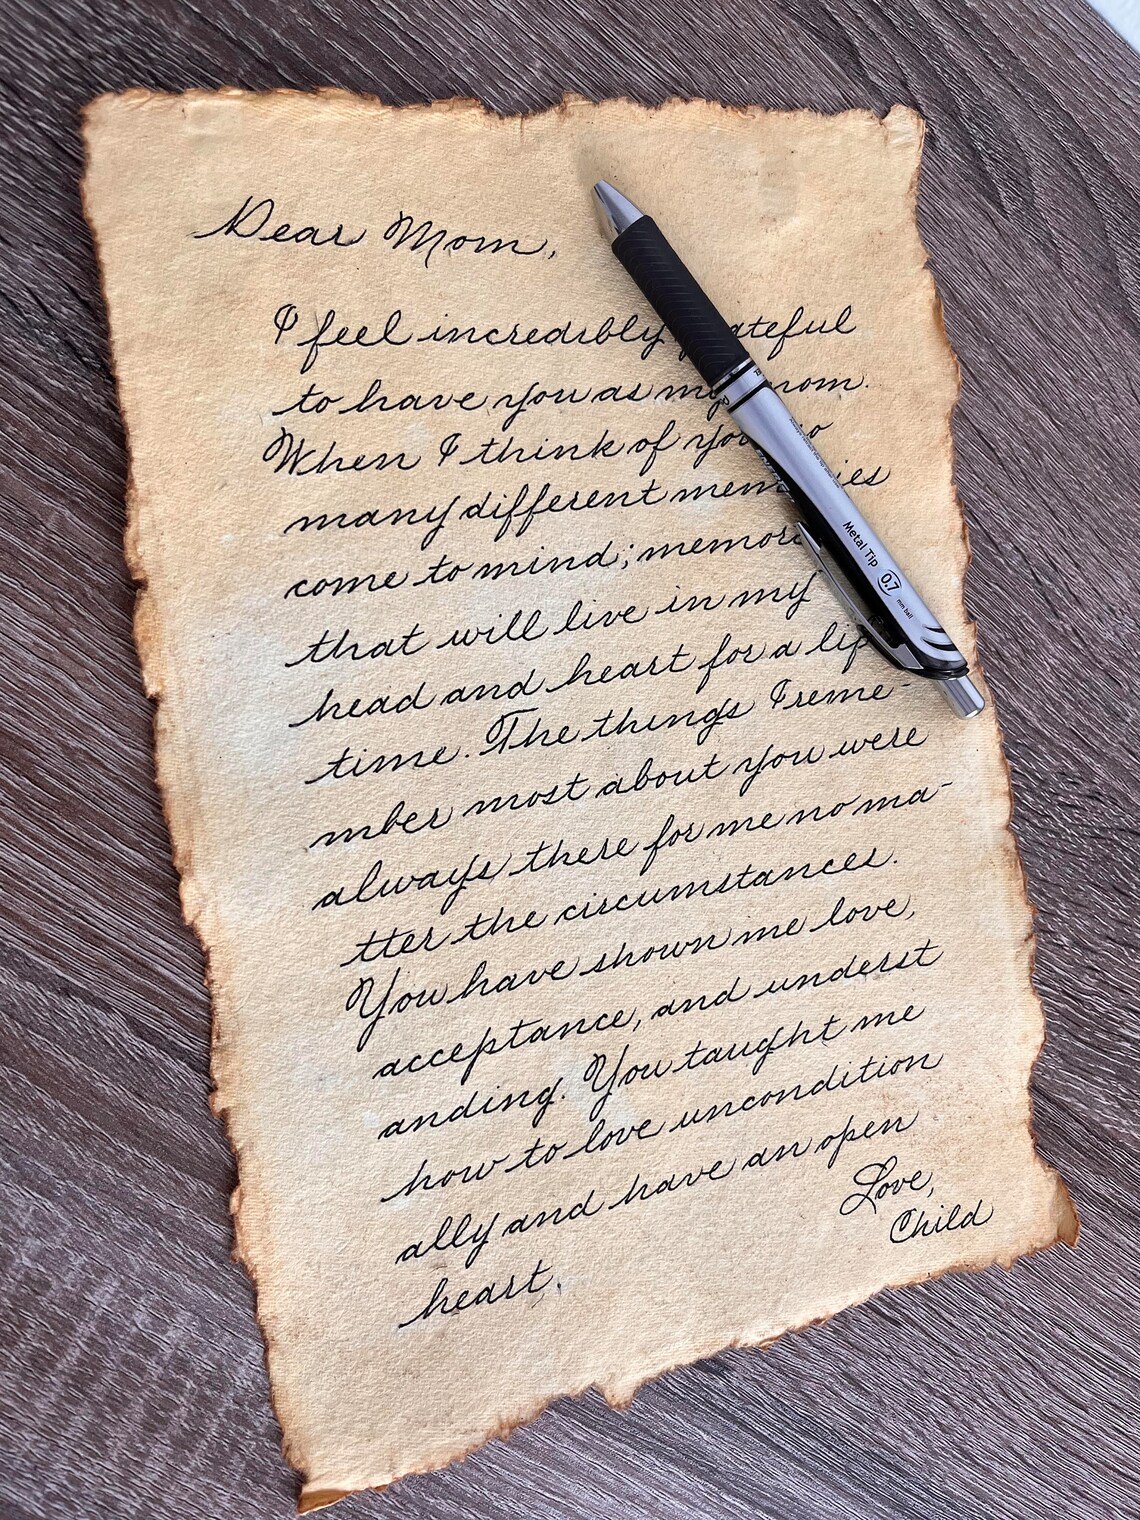 Dear Mom,
I feel incredibly ateful
to have you as my mom.
When I think of you so
many different memories
come to mind; memor
that will live in my
head and heart for a lif
time. The things I reme-
mber most about you were
always there for me no ma-
tter the circumstances.
You have shown me love,
acceptance, and underst
anding. You taught me
how to love uncondition
ally and have an open
heart.
Love,
Child
Metal Tip 0.7 mm ball